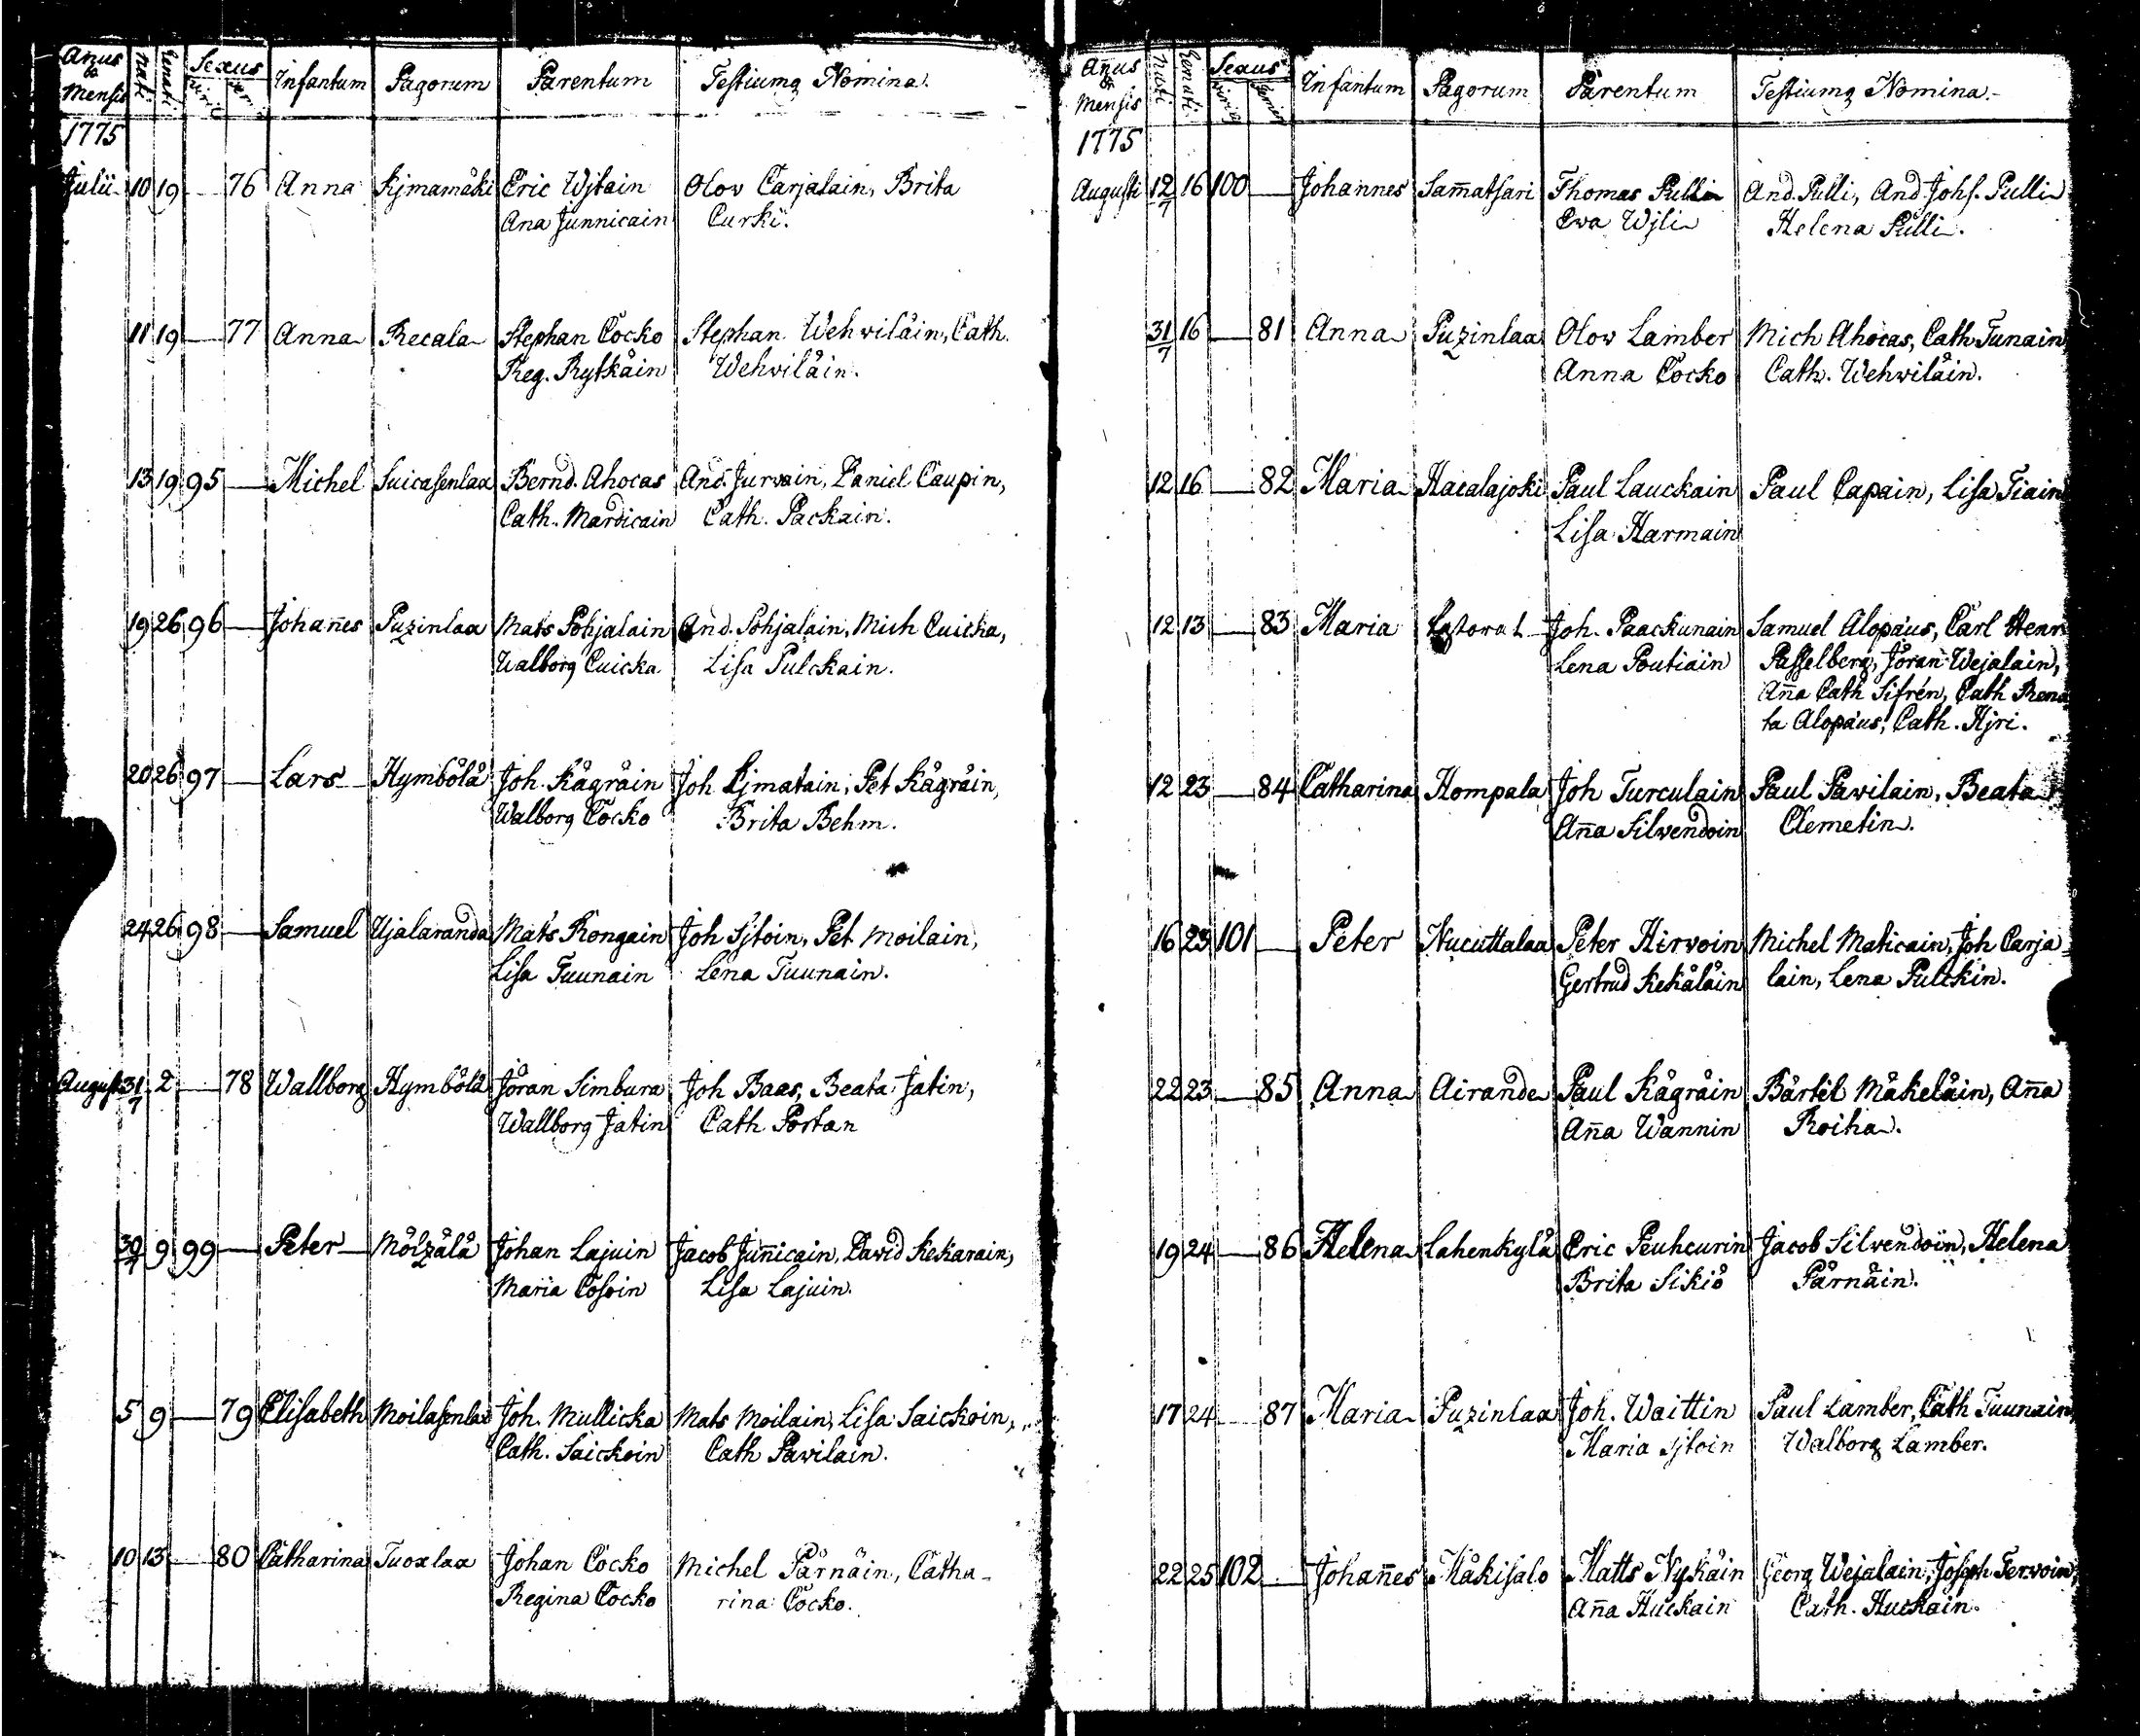 Anus & Mensis Nati Renati Sexus Viril. Infantum Pagorum Parentum Testiumq Nomina.
1775
Julii 10 19 — 76 Anna Kjmamäki Eric Wjtain Olov Carjalain, Brita
Ana Junnicain Curki.
11 19 — 77 Anna Recala Stephan Cocko Stephan Wehwiläin, Cath.
Reg. Rytkäin Wehwiläin.
13 19 95 — Michel Suicasenlax Bernd. Ahocas And. Jurvain, Daniel Caupin,
Cath. Mardicain Cath. Packain.
19 26 96 — Johañes Puzinlax Mats Pohjalain And. Pohjalain, Mich Cuicka,
Walborg Cuicka. Lisa Pulckain.
20 26 97 — Lars Hymbölä Joh. Kägräin Joh Kjmatain, Pet Kägräin,
Walborg Cocko Brita Behm.
24 26 98 — Samuel Ujalaranda Mats Rongain Joh Sjtoin, Pet Moilain,
Lisa Tuunain Lena Tuunain.
August 31/7 2 — 78 Wallborg Hymbölä Jöran Simbura Joh Baas, Beata Jatin,
Wallborg Jatin Cath Portan
30/7 9 99 — Peter Mölzälä Johan Lajuin Jacob Juñicain, David Kekarain,
Maria Cosoin Lisa Lajuin.
5 9 — 79 Elisabeth Moilasenlax Joh. Mullicka Mats Moilain, Lisa Saickoin,
Cath. Saickoin Cath Pavilain.
10 13 — 80 Catharina Tuoxlax Johan Cocko Michel Pärnäin, Catha-
Regina Cocko rina Cocko.
Añus & Mensis Nati Renati Sexus Infantum Pagorum Parentum Testiumq Nomina.
1775
Augusti 12/7 16 100 — Johannes Sam̃atsari Thomas Pulli And. Pulli, And Johs. Pulli
Ewa Wjli Helena Pulli.
31/7 16 — 81 Anna Puzinlax Olov Lamber Mich Ahocas, Cath Tunain,
Anna Cocko Cath. Wehwiläin.
12 16 — 82 Maria Hacalajoki Paul Lauckain Paul Capain, Lisa Tiain
Lisa Harmain
12 13 — 83 Maria Joh. Paackunain Samuel Alopæus, Carl Henr
Lena Poutiain Passelberg, Jöran Wejalain,
Aña Cath Sifrén, Cath Rena
ta Alopæus, Cath. Hjri.
12 23 — 84 Catharina Hompala Joh Turculain Paul Pavilain, Beata
Aña Silvendoin Clemetin.
16 23 101 — Peter Nucuttalax Peter Hirvoin Michel Maticain, Joh Carja-
Gertrud Kekäläin lain, Lena Pulckin.
22 23 — 85 Anna Airande Paul Kägräin Bärtil Mäkeläin, Aña
Aña Wannin Roiha.
19 24 — 86 Helena Lahenkylä Eric Peuhcurin Jacob Silvendoin, Helena
Brita Sikiö Pärnäin.
17 24 — 87 Maria Puzinlax Joh. Waittin Paul Lamber, Cath Tuunain,
Maria Sjtoin Walborg Lamber.
22 25 102 — Johañes Mäkisalo Matts Nykäin Georg Wejalain, Joseph Tervoin,
Aña Huckain Cath. Huckain.